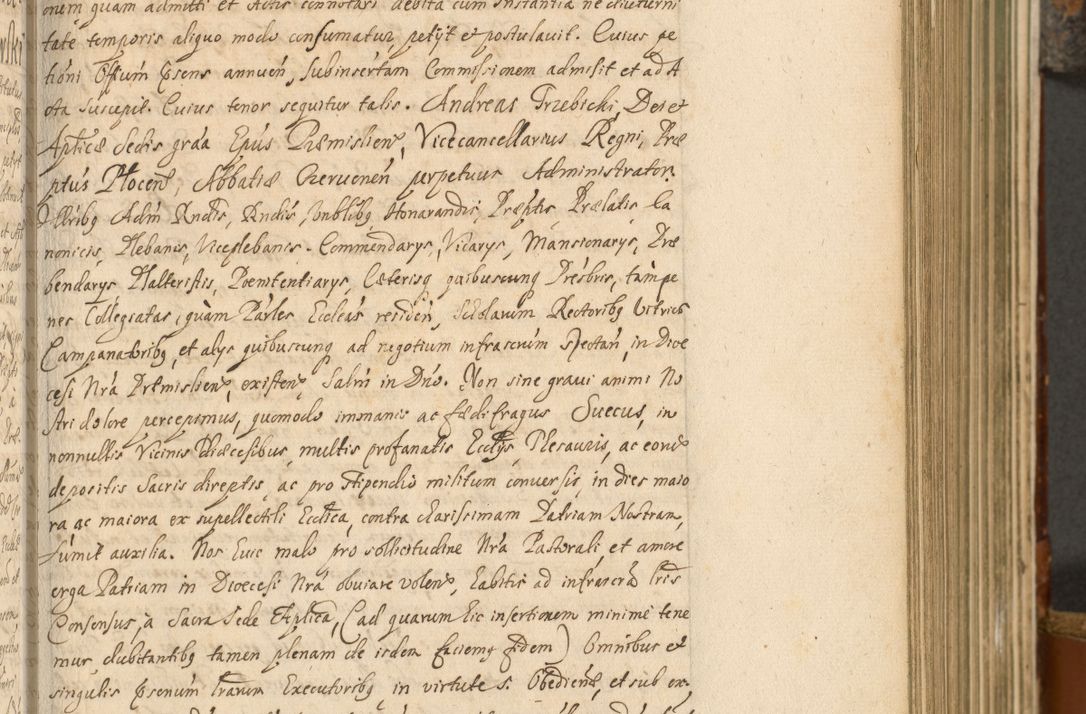 onem quam admitti et Actis connotari debita cum instantia ne diuturni
tate temporis aliquo modo consumatur, petijt et postulauit. Cuius pe
tioni Offium psens annuen, Subinsertam Commissionem admisit et ad A
cta suscepit. Cuius tenor sequitur talis. Andreas Trzebicki, Dei et
Aplicæ Sedis gráa Epús Præmislien, Vicecancellarius Regni, Præ
ptús Plocen, Abbatiæ Czeruenén perpetuus Administrator.
Adm Rndis, Rndis, Honorandis, Præptis Prælatis, Ca
nonicis, Plebanis, Viceplebanis. Commendarys, Vicarys, Mansionarys, Præ
bendarys Psalteristis, Poenitentiarys, Cæterisq quibuscunq Présbris, tàm pe
nes Collegiatas, quàm Párles Eccleás residén, Scholarum Rectoribq Vitricis
Campanatoribq, et alys quibuscunq ad negotium infrascrúm spectán, in Dioe
cesi Nrá Præmislien, existen, Salm in Dnó. Non sine graui animi No
stri dolore percepimus, quomodo immanis ac fædifragus Suecus, in
nonnullis Vicinis Diæcesibus, multis profanatis Ecclijs, Thesauris, ac eoru
depositis Sacris direptis, ac pro stipendio militum conuersis, in dies maio
ra ac maiora ex supellectili Ecclica, contra clarissimam Patriam Nostram,
sumit auxilia. Nos huic malo pro sollicitudine Nrá Pastorali et amore
erga Patriam in Dioecesi Nrá obuiare volen, habitis ad infrascrá lris
Consensus, à Sacra Sede Aplica, (ad quarum hic insertionem minimè tene
mur, dubitantibq tamen plenam de isdem faciemq fidem) Omnibus et
singulis psenúm lrarum Executoribq in virtute S. Obedien, et sub ex: